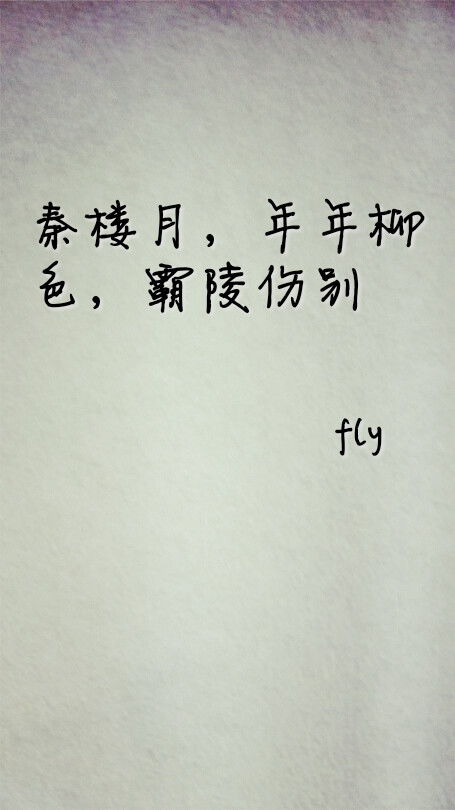 秦楼月，年年柳
色，霸陵伤别
fly